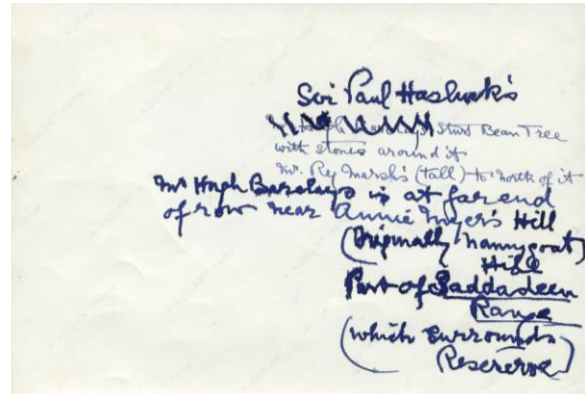 Sir Paul Hasluck's
Sturt Bean Tree
with stones around it
Mr. Reg Marsh's (tall) to north of it
Mr Hugh Barclays is at far end
of row near Annie Myer's Hill
(Originally Nannygoat)
Hill
Part of Saddadeen
Range
(which surrounds
Reserve)